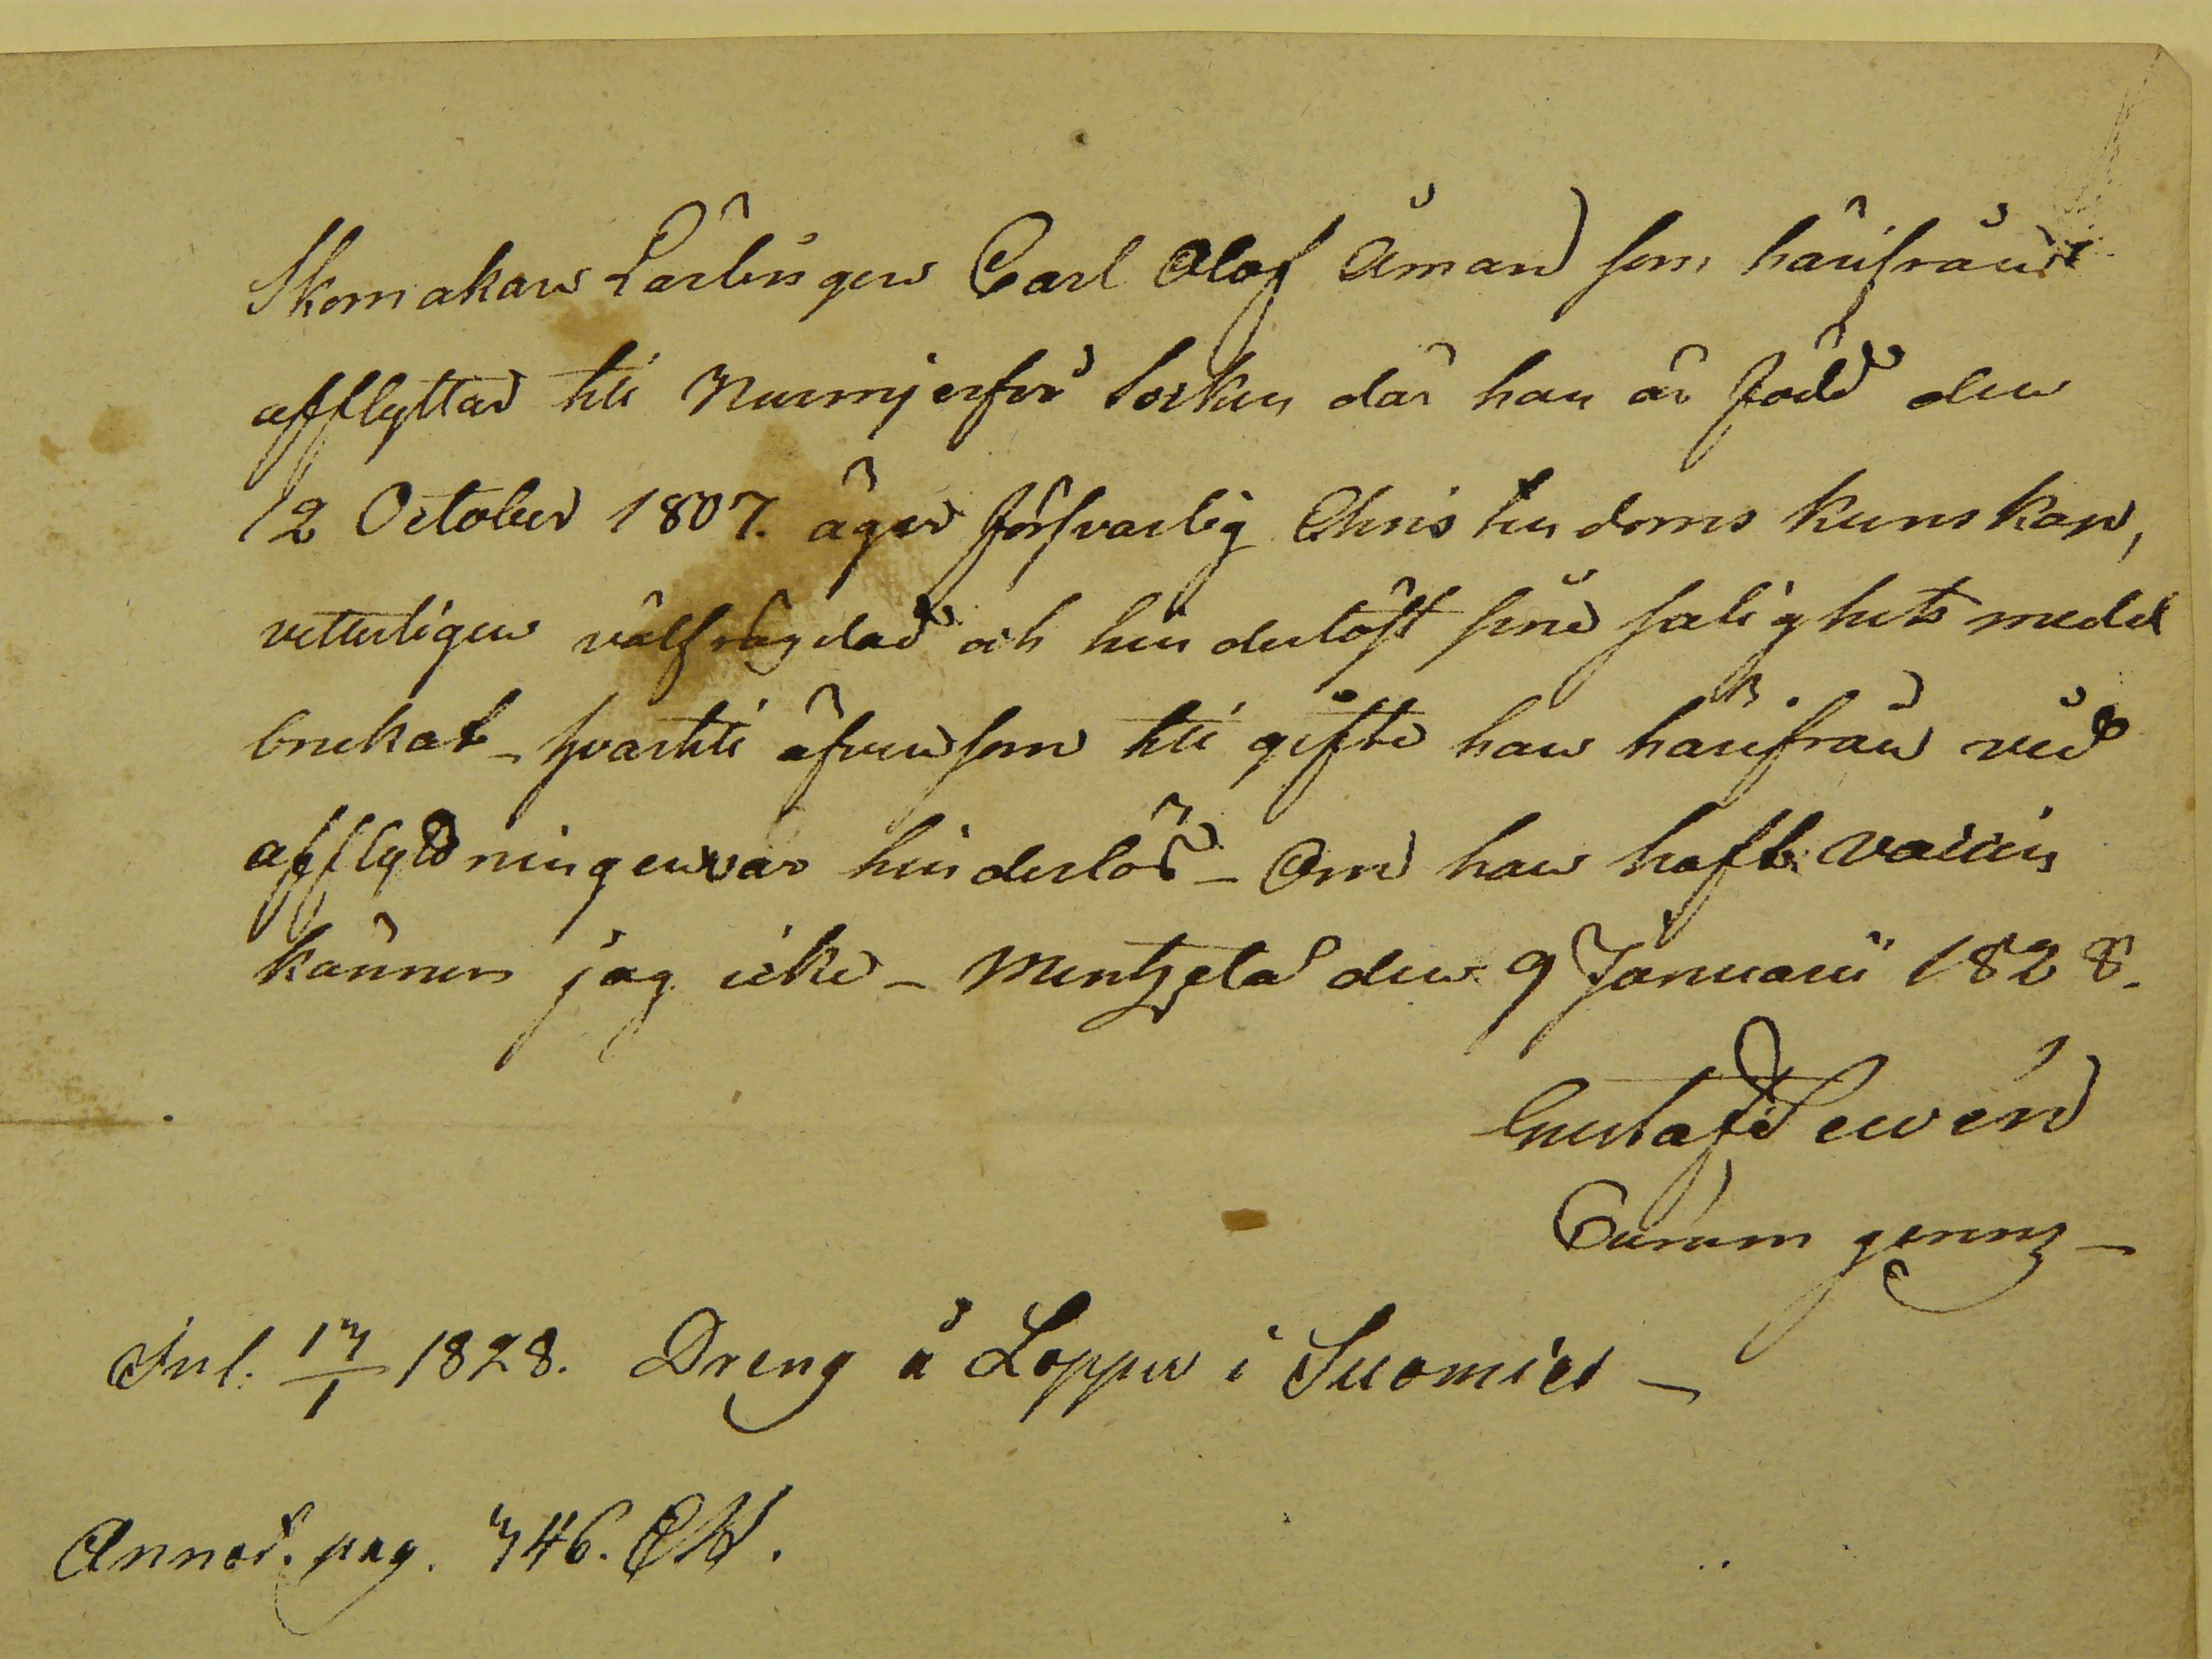 Skomakare Lärlingen Carl Olof Åman som härifrån
afflyttar till Nurmjerfvi Socken där han är född den
12 October 1807. äger försvarlig Christendoms kunskap,
vetterligen välfrägdad och hinderlöst sine salighets medel
brukat – hvartill äfvensom till gifte han härifrån vid
afflyttningen var hinderlös – Om han haft vaccin
känner jag icke – Mentzelä den 9 Januarii 1828.
Gustaf Lewén
Inl. 17/1 1828. Dreng å Loppis i Suomies –
Annot. pag. 746.